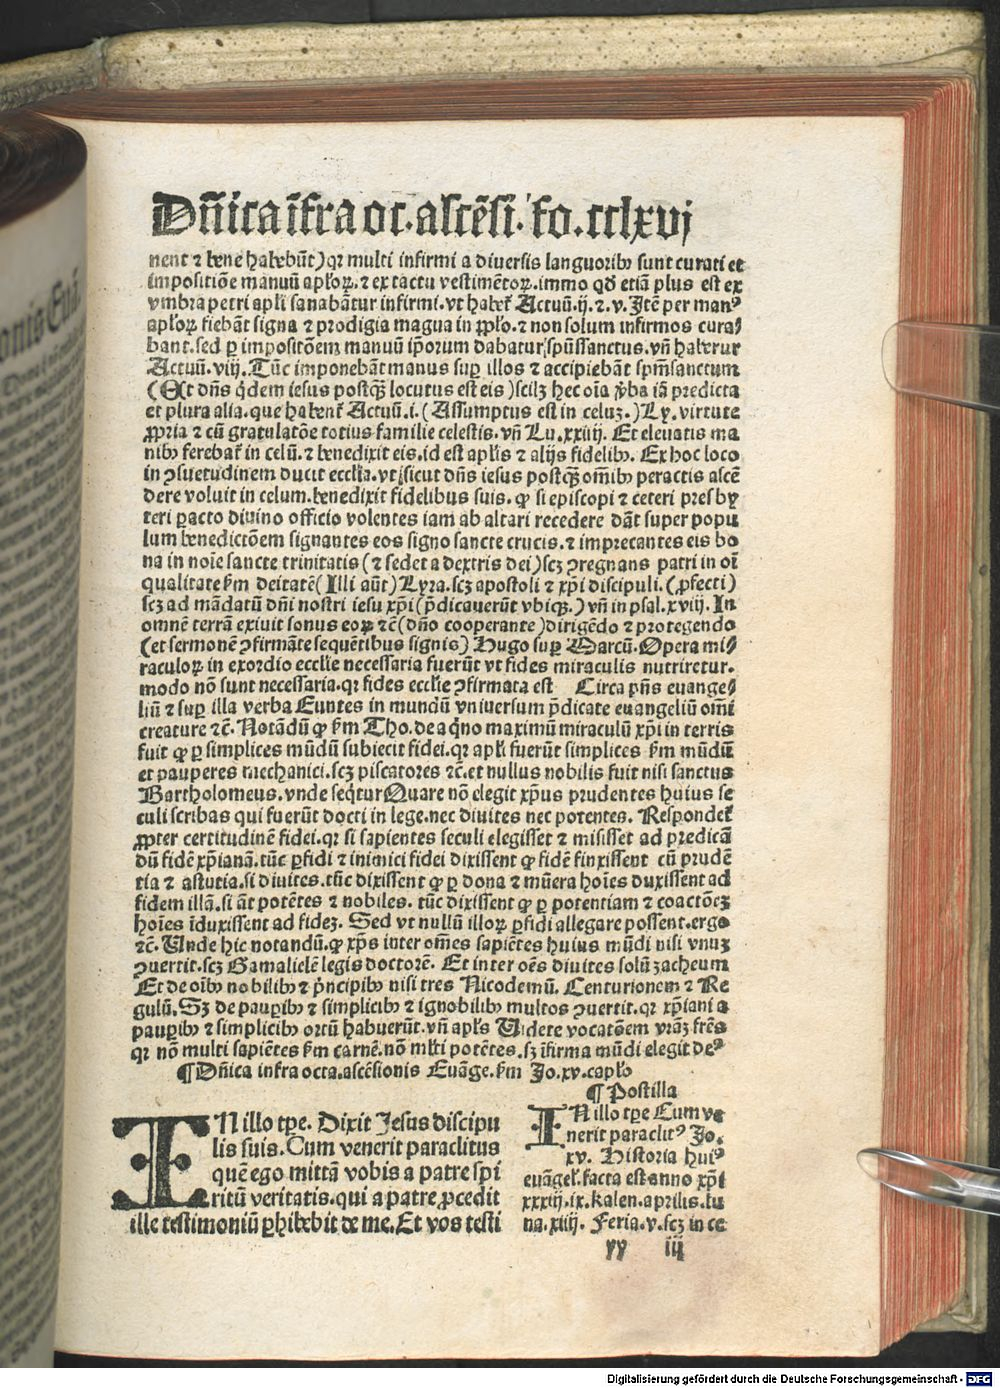 Dñica ĩfra oc. ascẽsi. fo. cclxvj
nent ⁊ bene habebũt) qꝛ multi infirmi a diuersis languoribꝰ sunt curati et
impositiõe manuũ aplõꝝ. ⁊ ex tactu vestimẽtoꝝ. immo qđ etiã plus est ex
vmbra petri apłi sanabãtur infirmi. vt habet᷑ Actuũ. ij. ⁊ .v. Itẽ per manꝰ
aplõꝝ fiebãt signa ⁊ prodigia magua in ꝓplo. ⁊ non solum infirmos cura/
bant. sed ꝑ impositõem manuũ ip̃orum dabatur spũssanctus. vñ habetur
Actuũ. viij. Tũc imponebãt manus suꝑ illos ⁊ accipiebãt spm̃sanctum
(Et dñs q̇dem iesus postq̃ȝ locutus est eis) scilȝ hec oĩa v̓ba iã predicta
et plura alia. que habent᷑ Actuũ. i. (Assumptus est in celuȝ.) Ly. virtute
ꝓpria ⁊ cũ gratulatõe totius familie celestis. vñ Lu. xxiiij. Et eleuatis ma
nibꝰ ferebat᷑ in celũ. ⁊ benedixit eis. id est apłis ⁊ alijs fidelibꝰ. Ex hoc loco
in ꝯsuetudinem ducit ecclia. vt sicut dñs iesus postq̃ȝ om̃ibꝰ peractis ascẽ
dere voluit in celum. benedixit fidelibus suis. ꝙ si episcopi ⁊ ceteri presby
teri ꝑacto diuino officio volentes iam ab altari recedere dãt super popu
lum benedictõem signantes eos signo sancte crucis. ⁊ imprecantes eis bo
na in noĩe sancte trinitatis (⁊ sedet a dextris dei) scȝ ꝯregnans patri in oĩ
qualitate fm̃ deitatẽ (Illi aũt) Lyra. scȝ apostoli ⁊ xp̃i discipuli. (ꝓfecti)
scȝ ad mãdatũ dñi nostri iesu xp̃i (p̃dicauerũt vbiqꝫ.) vñ in psal. xviij. In
omnẽ terrã exiuit sonus eoꝝ ⁊c̃ (dño cooperante) dirigẽdo ⁊ protegendo
(et sermonẽ ꝯfirmãte sequẽtibus signis) Hugo suꝑ Marcũ. Opera mi/
raculoꝝ in exordio ecclie necessaria fuerũt vt fides miraculis nutriretur.
modo nõ sunt necessaria. qꝛ fides ecclie ꝯfirmata est Circa p̃ñs euange/
liũ ⁊ suꝑ illa verba Euntes in mundũ vniuersum p̃dicate euangeliũ om̃i
creature ⁊c̃. Notãdũ ꝙ fm̃ Tho. de aq̇no maximũ miraculũ xp̃i in terris
fuit ꝙ ꝑ simplices mũdũ subiecit fidei. qꝛ apłi fuerũt simplices fm̃ mũdũ
et pauperes mechanici. scȝ piscatores ⁊c̃. et nullus nobilis fuit nisi sanctus
Bartholomeus. vnde seq̇tur Quare nõ elegit xp̃us prudentes huius se
culi scribas qui fuerũt docti in lege. nec diuites nec potentes. Respondet᷑
ꝓpter certitudinẽ fidei. qꝛ si sapientes seculi elegisset ⁊ misisset ad predicã
dũ fidẽ xp̃ianã. tũc ꝑfidi ⁊ inimici fidei dixissent ꝙ fidẽ finxissent cũ prudẽ
tia ⁊ astutia. si diuites. tũc dixissent ꝙ ꝑ dona ⁊ mũera hoĩes duxissent ad
fidem illã. si ãt potẽtes ⁊ nobiles. tũc dixissent ꝙ ꝑ potentiam ⁊ coactõeȝ
hoĩes ĩduxissent ad fideȝ. Sed vt nullũ illoꝝ ꝑfidi allegare possent. ergo
⁊c̃. Unde hic notandũ. ꝙ xp̃s inter om̃es sapiẽtes huius mũdi nisi vnuȝ
ꝯuertit. scȝ Gamalielẽ legis doctorẽ. Et inter oẽs diuites solũ zacheum
Et de oĩbꝰ nobilibꝰ ⁊ p̓ncipibꝰ nisi tres Nicodemũ. Centurionem ⁊ Re
gulũ. Sȝ de pauꝑibꝰ ⁊ simplicibꝰ ⁊ ignobilibꝰ multos ꝯuertit. qꝛ xp̃iani a
pauꝑibꝰ ⁊ simplicibꝰ ortũ habuerũt. vñ apłs Uidete vocatõem vrãȝ frẽs
qꝛ nõ multi sapiẽtes fm̃ carnẽ. nõ mĺti potẽtes. sȝ ĩfirma mũdi elegit deꝰ
¶ Dñica infra octa. ascẽsionis Euãge. fm̃ Jo. xv. caplo
IN illo tꝑe. Dixit Jesus discipu
lis suis. Cum venerit paraclitus
quẽ ego mittã vobis a patre spi
ritũ veritatis. qui a patre ꝓcedit
ille testimoniũ ꝑhibebit de me. Et vos testi
¶ Postilla
IN illo tꝑe Cum ve
nerit paraclitꝰ Jo.
xv. Historia huiꝰ
euãgel̃. facta est anno xp̃i
xxxiij. ix. kalen. aprilis. lu
na. xiiij. Feria. v. scȝ in ce
yy iij
Digitalisierung gefördert durch die Deutsche Forschungsgemeinschaft - DFG